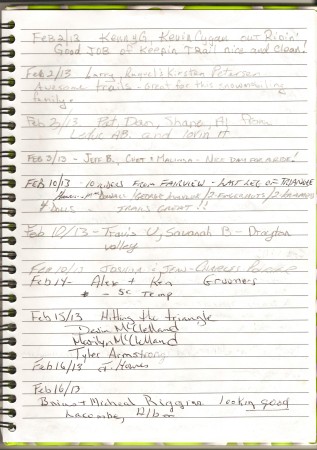 Feb 2/13 Kenny G. Kevin Cygan out Ridin'
Good JOB of Keepin TRail nice and clean!
Feb 2/13 Larry, Raquel & Kirsten Petersen
Awesome trails - Great for this snowmobiling
family.
Feb 2/13 Pat, Dan, Shane, Al from
AB. and lovin it
Feb 3/13 - Jeff B., Curt & - Nice day for a ride!
Feb 10/13 - 10 riders from FAIRVIEW - LAST LEG OF TRIANGLE
4 DOO'S - TRAILS GREAT!!
Feb 10/13 - Travis U, Savanah B - Drayton
Valley
Feb 10/13 & Jean-Charles
Feb 14 - Alex + Ken Groomers
- 5c Temp
Feb 15/13 Hitting the triangle
Devin McClelland
Marilyn McClelland
Tyler Armstrong
Feb 16/13 J. Howes
Feb 16/13
Brian + Micheal Riggins Looking good
Lacombe,